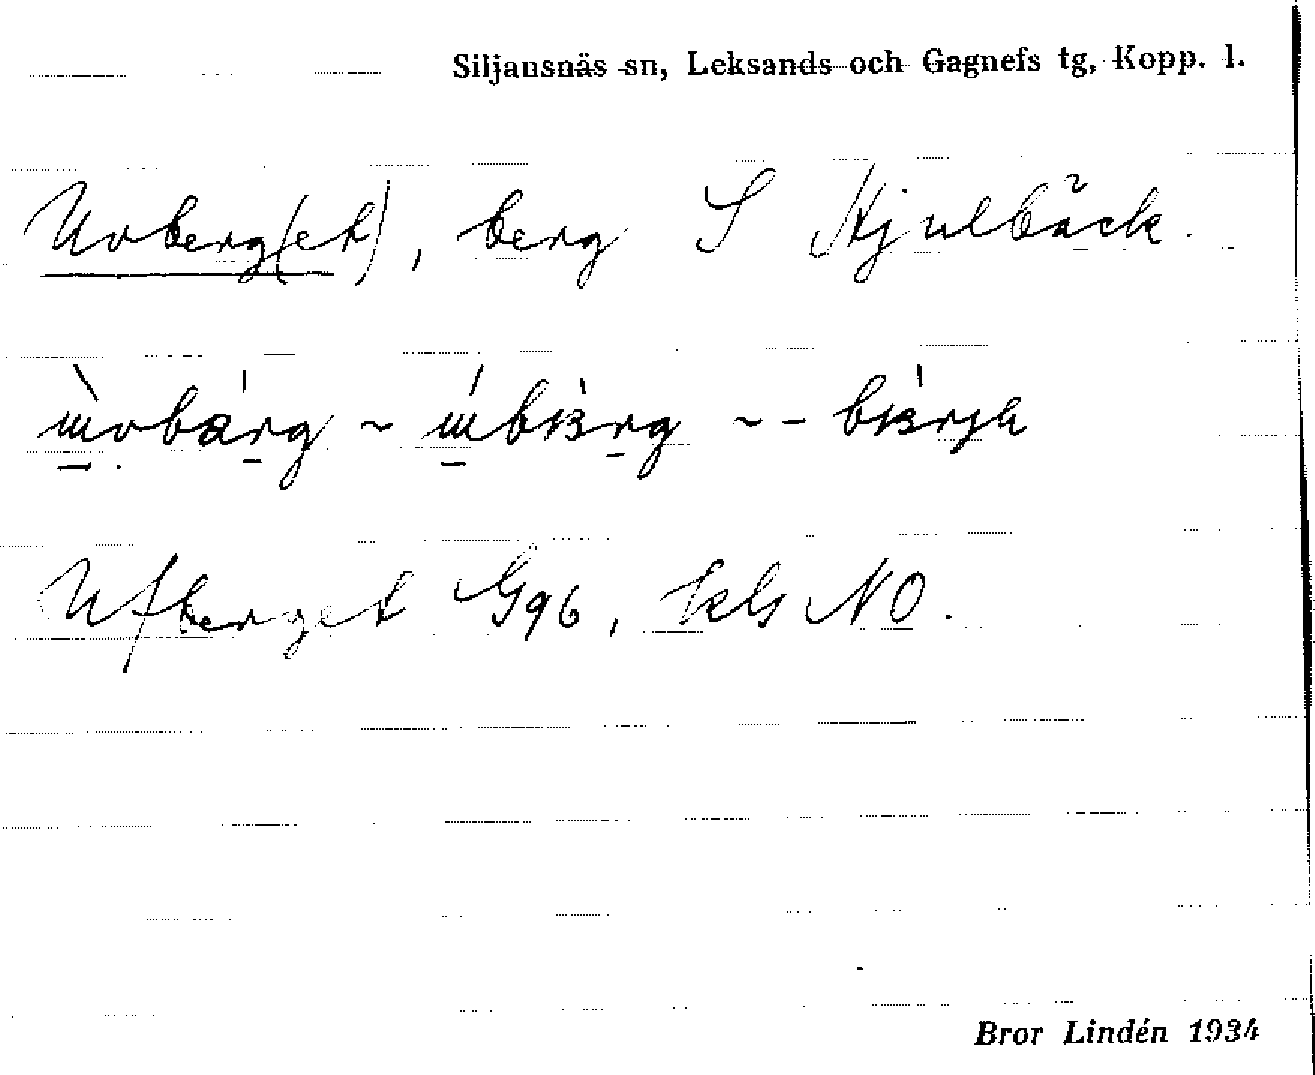 Siljansnäs sn, Leksands och Gagnefs tg, Kopp. l.
Uvberg(et), berg S Hjulbäck.
Ufberget G96, kls NO.
Bror Lindén 1934